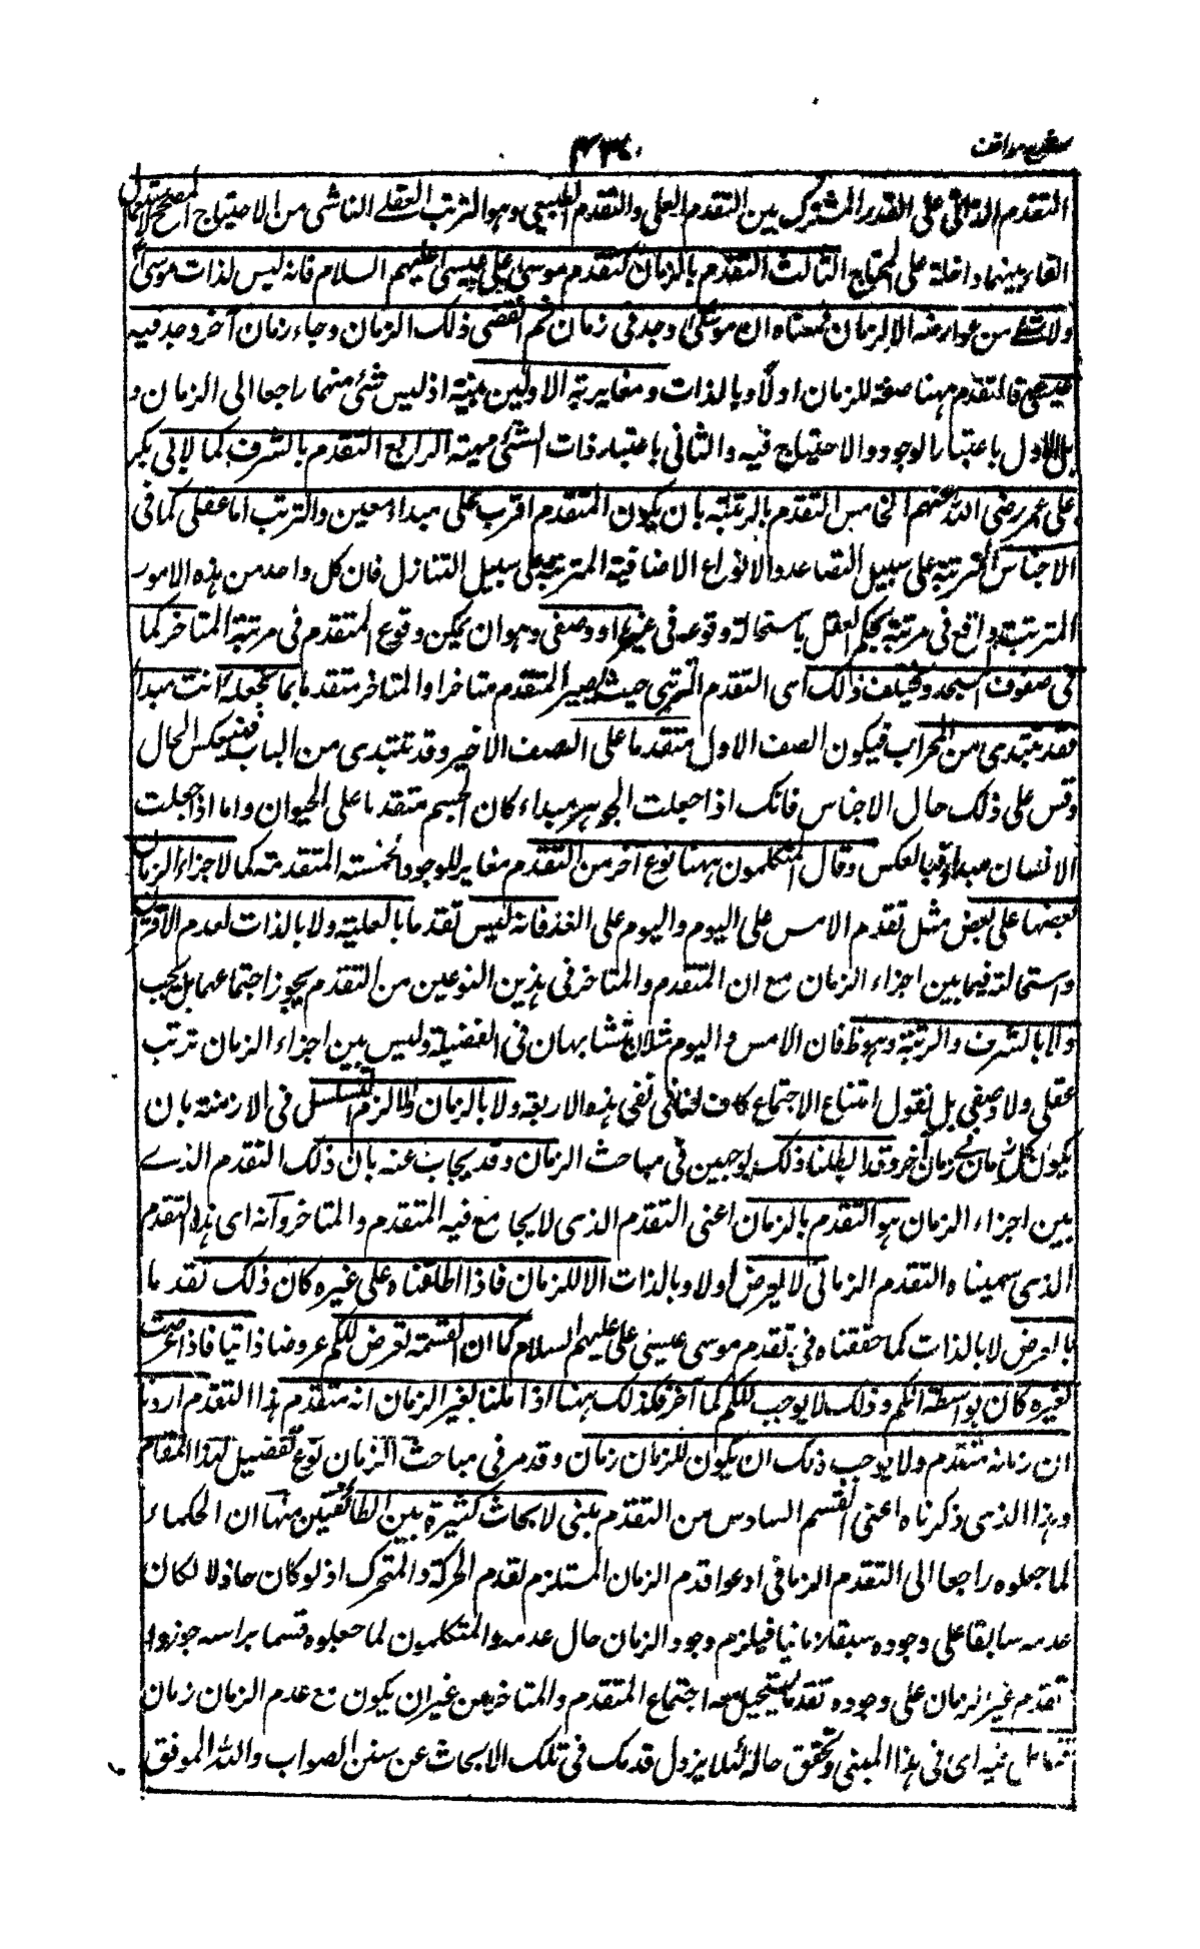 شرح مواقف
التقدم الذاتى على القدر المشترك بين التقدم العلى والتقدم الطبيعى وهو الترتب العقلے الناشى من الاحتياج المصحح لاستعمال
الفاء بينهما داخلة على المحتاج الثالث التقدم بالزمان كتقدم موسىٰ على عيسىٰ عليهم السلام فانه ليس لذات موسىٰ
ولا شئ من عوارضه الا الزمان فمعناه ان موسىٰ وجد فى زمان ثم انقضى ذلك الزمان وجاء زمان آخر وجد فيه
عيسى فالتقدم ههنا صفة للزمان اولا وبالذات ومغايرته الاولين بينة اذ ليس شئ منهما راجعا الى الزمان و
بل الاول باعتبار الوجود والاحتياج فيه والثانى باعتبار ذات الشئ وهيئته الرابع التقدم بالشرف كما لابى بكر
على عمر رضى الله عنهم الخامس التقدم بالرتبة بان يكون المتقدم اقرب الى مبداء معين والترتب اما عقلى كما فى
الاجناس المترتبة على سبيل التصاعد والانواع الاضافية المترتبة على سبيل التنازل فان كل واحد من هذه الامور
المترتبة واقع فى مرتبة يحكم العقل باستحالة وقوعه فى غيرها او وضعى وهو ان يمكن وقوع المتقدم فى مرتبة المتاخر كما
فى صفوف المسجد ويختلف ذلك اى التقدم الرتبى حيث يصير المتقدم متاخرا والمتاخر متقدما بما تجعله انت مبدأ
فقد تبتدى من المحراب فيكون الصف الاول متقدما على الصف الاخير وقد تبتدى من الباب فينعكس الحال
وقس على ذلك حال الاجناس فانك اذا جعلت الجوهر مبداء كان الجسم متقدما على الحيوان واما اذا جعلت
الانسان مبدا فبالعكس وقال المتكلمون ههنا نوع آخر من التقدم مغاير للوجوه الخمسة المتقدمة كما لاجزاء الزمان
بعضها على بعض مثل تقدم الامس على اليوم واليوم على الغد فانه ليس تقدما بالعلية ولا بالذات لعدم الاقتران
واستحالته فيما بين اجزاء الزمان مع ان المتقدم والمتاخر فى هذين النوعين من التقدم يجوز اجتماعهما بل يجب
ولا بالشرف والرتبة وهو ظ فان الامس واليوم مثلا متشابهان فى الفضيلة وليس بين اجزاء الزمان ترتب
عقلى ولا وضعى بل نقول امتناع الاجتماع كاف لنا فى نفى هذه الاربعة ولا بالزمان والا لزم التسلسل فى الازمنة بان
يكون لكل زمان زمان آخر وقد ابطلنا ذلك بوجهين فى مباحث الزمان وقد يجاب عنه بان ذلك التقدم الذے
بين اجزاء الزمان هو التقدم بالزمان اعنى التقدم الذى لا يجامع فيه المتقدم والمتاخر وانه اى هذا التقدم
الذى سميناه التقدم الزمانى لا يعرض اولا وبالذات الا للزمان فاذا اطلقناه على غيره كان ذلك تقدما
بالعرض لا بالذات كما حققناه فى تقدم موسى على عيسى عليهم السلام كما ان القسمة تعرض للكم عروضا ذاتيا فاذا عرضت
لغيره كان بواسطة الكم وذلك لا يوجب للكم كما آخر فكذلك ههنا اذا قلنا لغير الزمان انه متقدم هذا التقدم اردنا
ان زمانه متقدم ولا يوجب ذلك ان يكون للزمان زمان وقد مر فى مباحث الزمان نوع تفصيل لهذا المقام
وهذا الذى ذكرناه اعنى القسم السادس من التقدم مبنى لابحاث كثيرة بين الطائفتين منها ان الحكماء
لما جعلوه راجعا الى التقدم الزمانى ادعوا قدم الزمان المستلزم لقدم الحركة والمتحرك اذ لو كان حادثا لكان
عدمه سابقا على وجوده سبقا زمانيا فيلزم وجود الزمان حال عدمه والمتكلمون لما جعلوه قسما براسه جوزوا
تقدم غير الزمان على وجوده تقدما يستحيل معه اجتماع المتقدم والمتاخر من غير ان يكون مع عدم الزمان زمان
فتامل فيه اى فى هذا المبنى وتحقق حاله لئلا يزول قدمك فى تلك الابحاث عن سنن الصواب والله الموفق